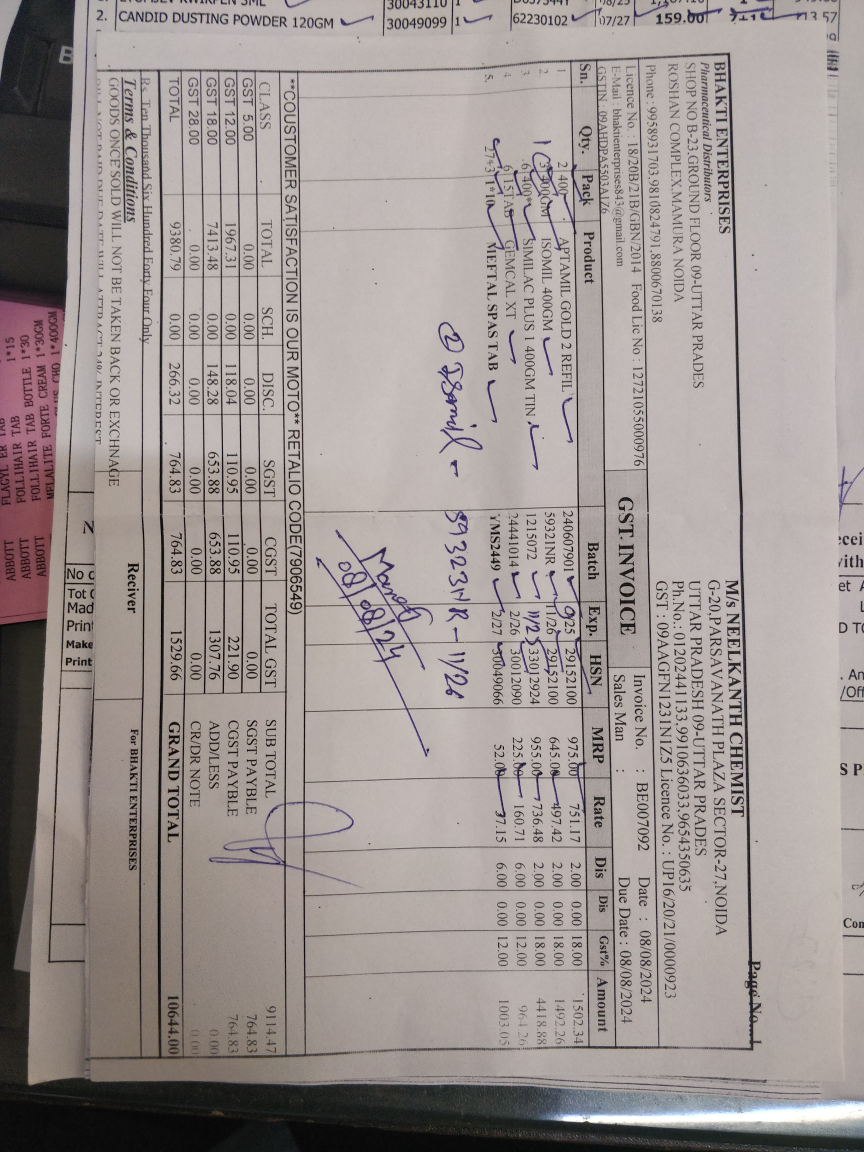 CANDID DUSTING POWDER 120GM 30049099 1 62230102 07/27 159.00
Page No...1
BHAKTI ENTERPRISES
Pharmaceutical Distributors
SHOP NO B-23,GROUND FLOOR 09-UTTAR PRADES
ROSHAN COMPLEX,MAMURA NOIDA
Phone : 9958931703.9810824791.8800670138
Licence No : 18/20B/21B/GBN/2014 Food Lic No : 12721055000976
E-Mail : bhaktienterprises843@gmail.com
GSTIN : 09AHDPA5503A1Z6
M/s NEELKANTH CHEMIST
G-20,PARSAVANATH PLAZA SECTOR-27,NOIDA
UTTAR PRADESH 09-UTTAR PRADES
Ph.No.: 01202441133,9910636033,9654350635
GST : 09AAGFN1231N1Z5 Licence No. : UP16/20/21/0000923
GST INVOICE
Invoice No. : BE007092 Date : 08/08/2024
Sales Man : Due Date : 08/08/2024
Sn. Qty. Pack Product Batch Exp. HSN MRP Rate Dis Dis Gst% Amount
1 2 400 APTAMIL GOLD 2 REFIL 240607901 9/25 29152100 975.00 751.17 2.00 0.00 18.00 1502.34
2. 3 400GM ISOMIL 400GM 59321NR 11/26 29152100 645.00 497.42 2.00 0.00 18.00 1492.26
3 6 400 SIMILAC PLUS 1 400GM TIN 1215072 11/25 33012924 955.00 736.48 2.00 0.00 18.00 4418.88
4 6 15TAB GEMCAL XT 24441014 2/26 30012090 225.00 160.71 6.00 0.00 12.00 964.26
5. 1*10 MEFTAL SPAS TAB YMS2449 2/27 30049066 52.00 37.15 6.00 0.00 12.00 1003.05
② Isomil - 59323NR - 11/26
08/08/24
**COUSTOMER SATISFACTION IS OUR MOTO** RETALIO CODE(7906549)
CLASS TOTAL SCH. DISC. SGST CGST TOTAL GST
GST 5.00 0.00 0.00 0.00 0.00 0.00 0.00
GST 12.00 1967.31 0.00 118.04 110.95 110.95 221.90
GST 18.00 7413.48 0.00 148.28 653.88 653.88 1307.76
GST 28.00 0.00 0.00 0.00 0.00 0.00 0.00
TOTAL 9380.79 0.00 266.32 764.83 764.83 1529.66
SUB TOTAL 9114.47
SGST PAYBLE 764.83
CGST PAYBLE 764.83
ADD/LESS 0.00
CR/DR NOTE 0.00
GRAND TOTAL 10644.00
Rs. Ten Thousand Six Hundred Forty Four Only
Terms & Conditions
GOODS ONCE SOLD WILL NOT BE TAKEN BACK OR EXCHNAGE
Reciver
For BHAKTI ENTERPRISES